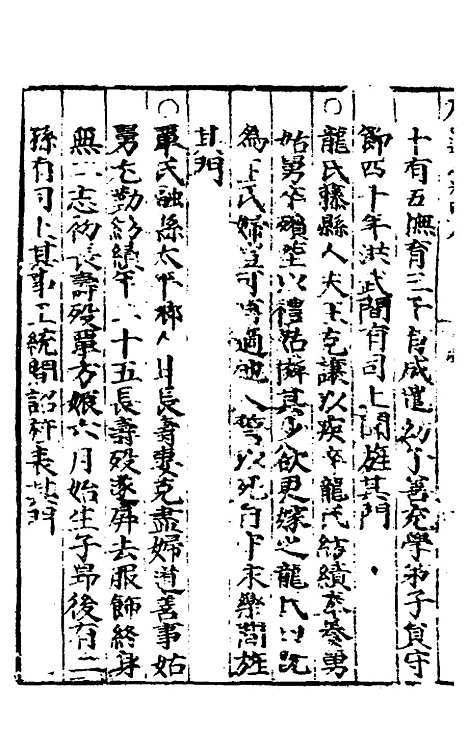 十有五撫育三子皆成遣幼子善充學弟子員守
節四十年洪武間有司上聞旌其門
○龍氏藤縣人夫王克讓以疾卒龍氏紡績奉養舅
姑舅卒殯塟以禮姑憐其少欲更嫁之龍氏曰既
為王氏婦豈可他適人誓以死自卜永樂間旌
其門
○覃氏融縣太平鄉人甘長壽妻克盡婦道善事姑
舅尤勤紡績年二十五長壽殁遂屏去服飾終身
無二志初長壽殁覃方娠六月始生子昂後有二
孫有司上其事正統間詔旌表其門